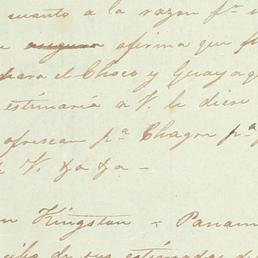 cuanto a la razon pr. u
asegura afirma que f
para el Choco y Guayaq
estimaria a V. le diese
ofrescan pa. Chagre pa.
V. &a &a. –
n Kingston – Panam
cibo de sus estimadas d